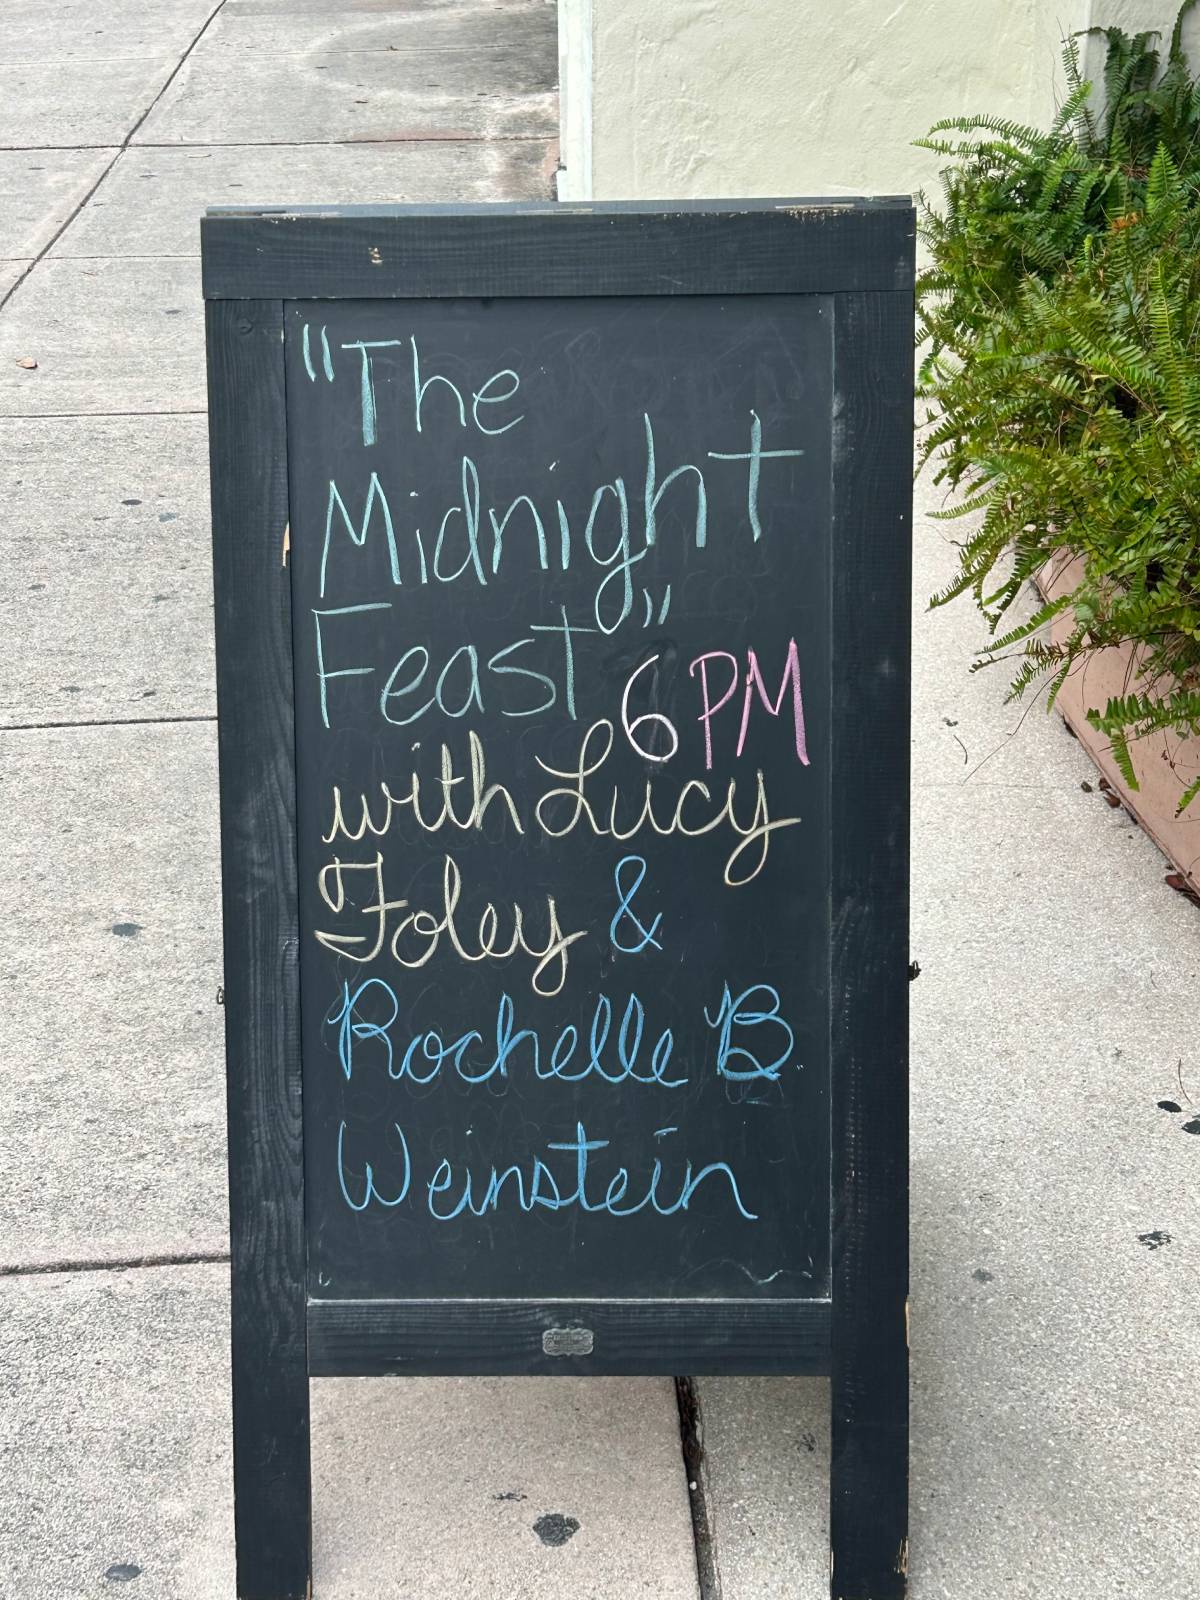 "The
Midnight
Feast"
6PM
with Lucy
Foley &
Rochelle B
Weinstein